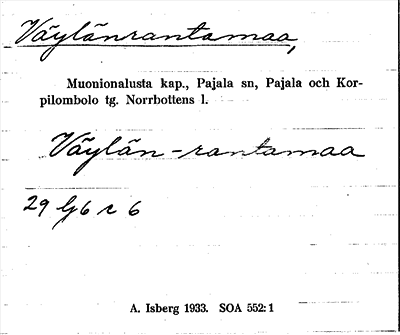 Väylänrantamaa,
Muonionalusta kap., Pajala sn, Pajala och Kor-
pilombolo tg. Norrbottens l.
Väylän-rantamaa
29 Gj 6 c 6
A. Isberg 1933. SOA 552:1